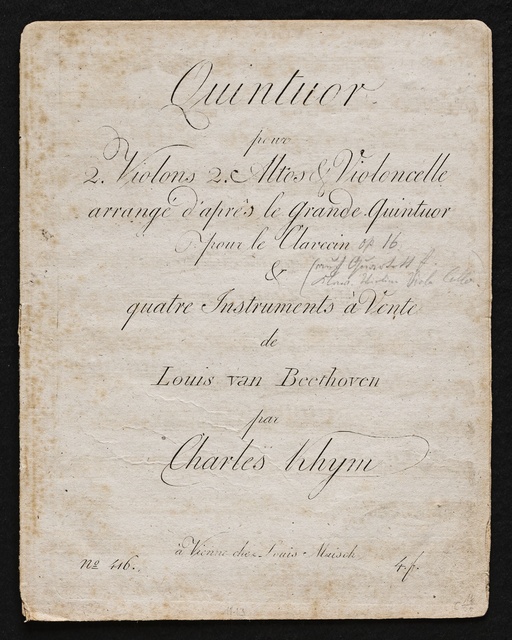 Quintuor
pour
2. Violons 2. Altos & Violoncelle
arrangé d'après le Grande Quintuor
pour le Clavecin op 16
(auch Quartett f.
Klav. Violin Viola Cello
&
quatre Instruments à Vente
de
Louis van Beethoven
par
Charles Khym
à Vienne chez Louis Maisch
nº 416. 4.f.